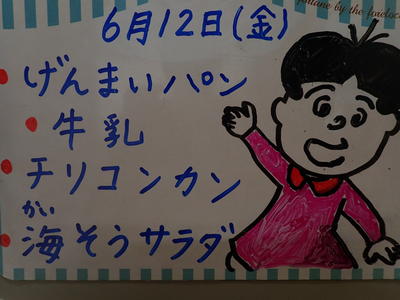 fortune by the forelock
6月12日(金)
げんまいパン
牛乳
チリコンカン
かい
海そうサラダ